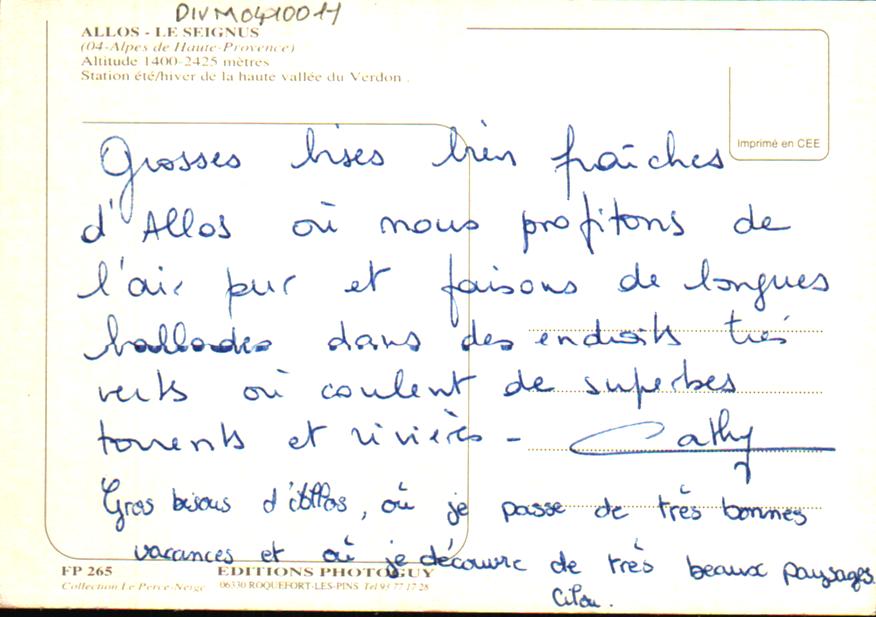 DIVM0410011
ALLOS - LE SEIGNUS
(04-Alpes de Haute-Provence)
Altitude 1400-2425 mètres
Station été/hiver de la haute vallée du Verdon .
Imprimé en CEE
Grosses bises bien fraîches
d'Allos où nous profitons de
l'air pur et faisons de longues
ballades dans des endroits très
verts où coulent de superbes
torrents et rivières -
Cathy
Gros bisous d'Allos, où je passe de très bonnes
vacances et où je découvre de très beaux paysages.
FP 265
EDITIONS PHOTOGUY
Collection Le Perce-Neige
06330 ROQUEFORT-LES-PINS Tél 93 77 17 28